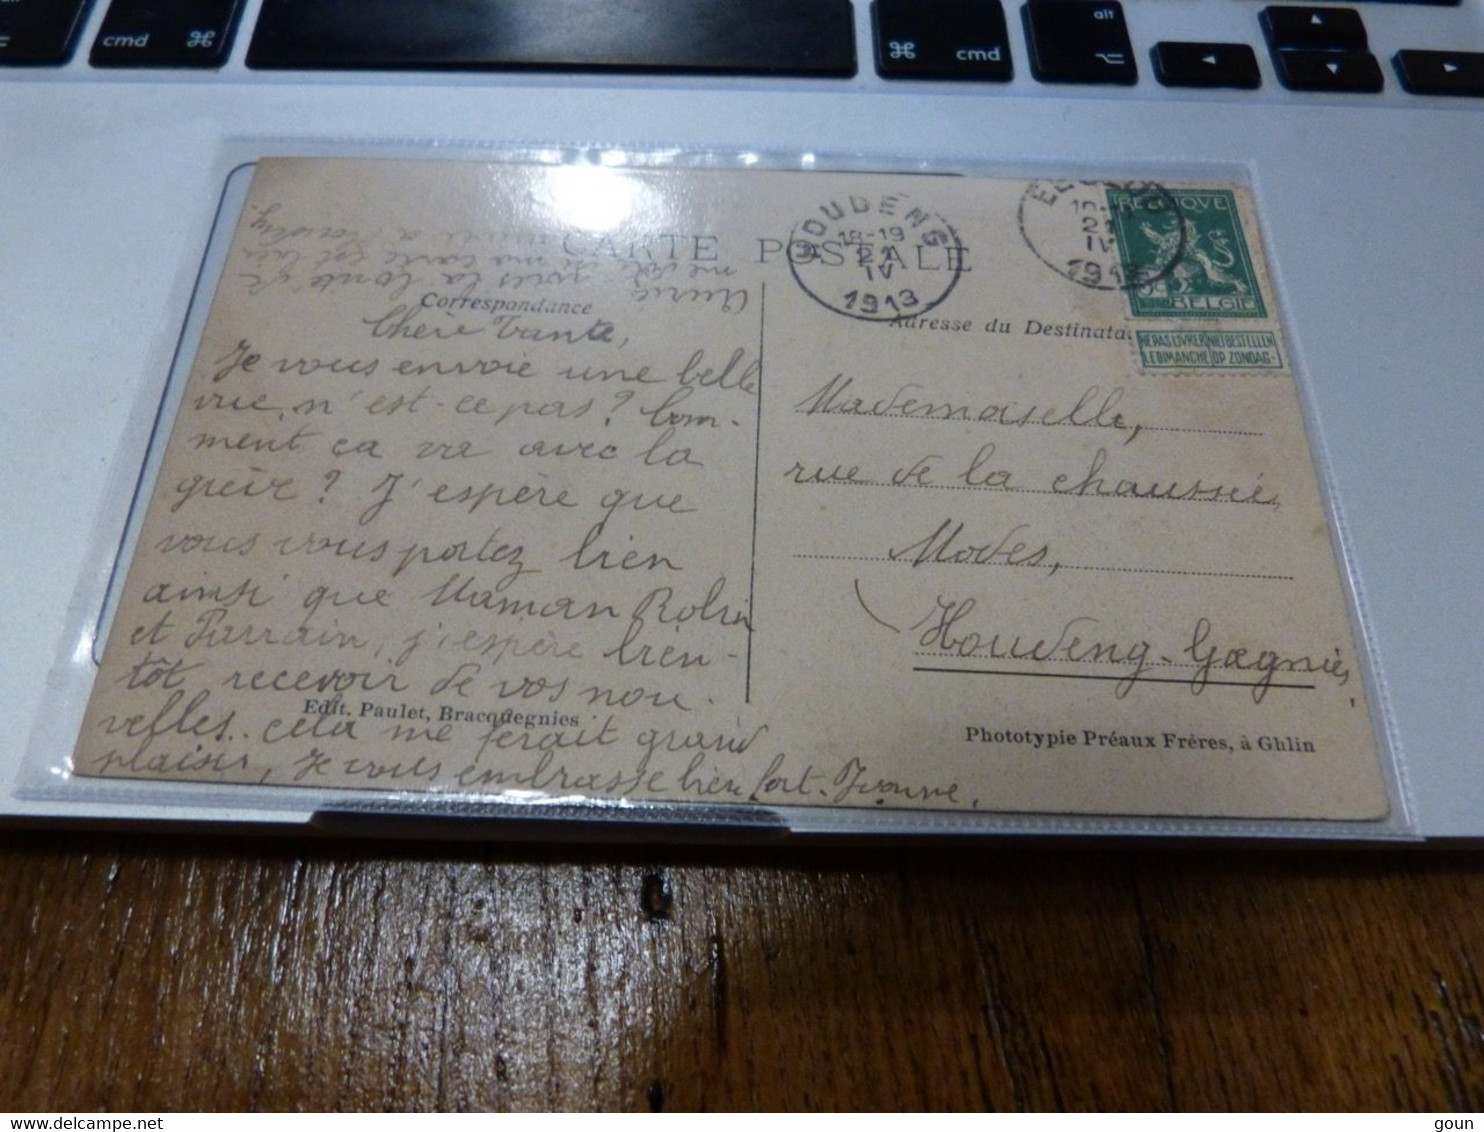 alt
cmd ⌘
⌘ cmd
alt
CARTE POSTALE
Correspondance
Chère Tante,
Je vous envoie une belle
vue, n'est-ce pas? Com-
ment ça va avec la
grève? J'espère que
vous vous portez bien
ainsi que Maman
et Parrain, j'espère bien-
tôt recevoir de vos nou-
velles. cela me ferait grand
plaisir, Je vous embrasse bien fort. Yvonne,
Edit. Paulet, Bracquegnies
HOUDENG
18-19
21
IV
1913
21
IV
BELGIQUE
BELGIE
NE PAS LIVRER NIET BESTELLEN
LE DIMANCHE OP ZONDAG
Adresse du Destinata
Mademoiselle,
rue de la chaussée,
Modes,
Houdeng-Goegnies,
Phototypie Préaux Frères, à Ghlin
delcampe.net
goun